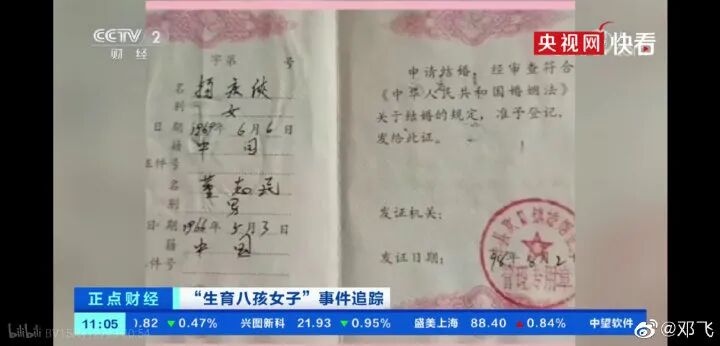 CCTV 2
财经
央视网 快看
字第 号
名 杨庆侠
别 女
日期 1969年6月6日
籍 中国
证件号
名 董志民
别 男
日期 1966年5月3日
籍 中国
件号
申请结婚,经审查符合
《中华人民共和国婚姻法》
关于结婚的规定,准予登记,
发给此证。
发证机关:
发证日期: 98年8月2
正点财经 “生育八孩女子”事件追踪
11:05 0.82 ▼0.47% 兴图新科 21.93 ▼0.95% 盛美上海 88.40 ▲0.84% 中望软件
bilibili
@邓飞